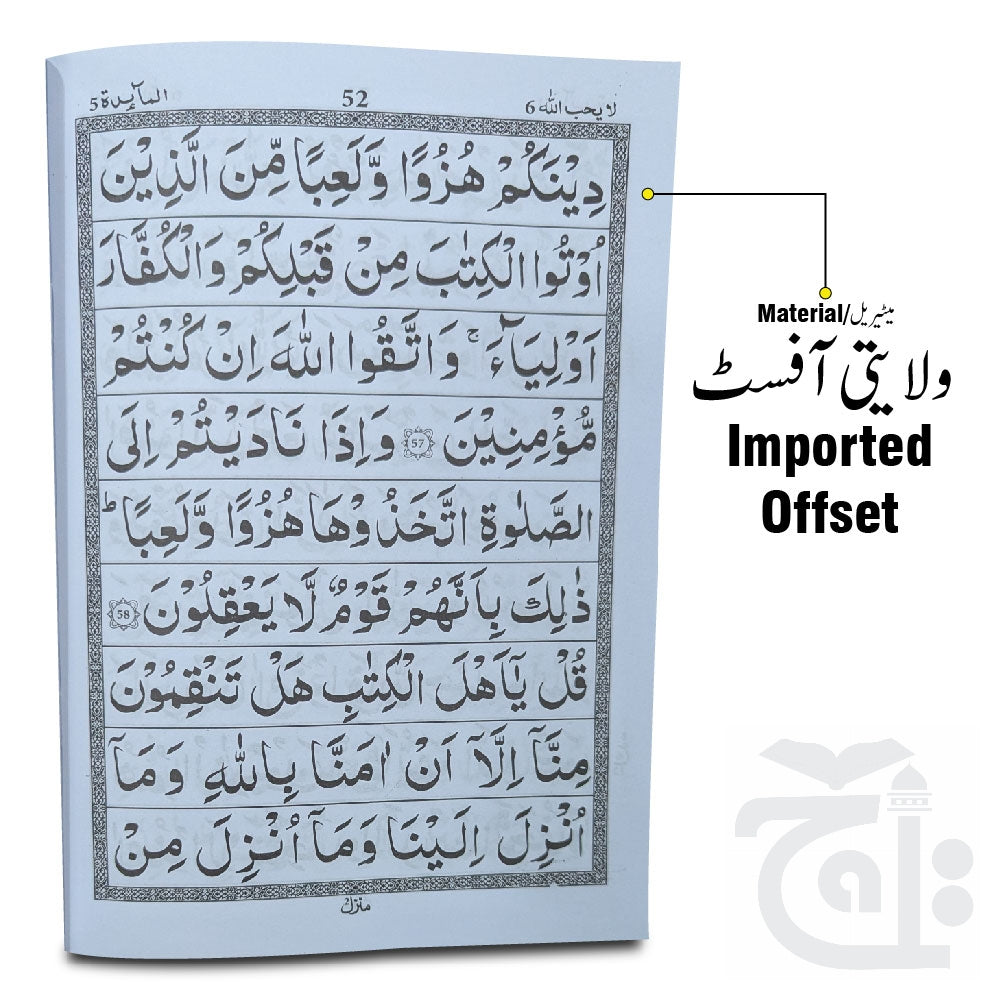 المآىٕدة 5
52
لا یحب الله 6
دِیْنَكُمْ هُزُوًا وَّ لَعِبًا مِّنَ الَّذِیْنَ
اُوْتُوا الْكِتٰبَ مِنْ قَبْلِكُمْ وَ الْكُفَّارَ
اَوْلِیَآءَ ۚ وَ اتَّقُوا اللّٰهَ اِنْ كُنْتُمْ
مُّؤْمِنِیْنَ 57 وَ اِذَا نَادَیْتُمْ اِلَى
الصَّلٰوةِ اتَّخَذُوْهَا هُزُوًا وَّ لَعِبًا ؕ
ذٰلِكَ بِاَنَّهُمْ قَوْمٌ لَّا یَعْقِلُوْنَ 58
قُلْ یٰۤاَهْلَ الْكِتٰبِ هَلْ تَنْقِمُوْنَ
مِنَّاۤ اِلَّاۤ اَنْ اٰمَنَّا بِاللّٰهِ وَ مَاۤ
اُنْزِلَ اِلَیْنَا وَ مَاۤ اُنْزِلَ مِنْ
منزل
Material/میٹیریل
ولایتی آفسٹ
Imported
Offset